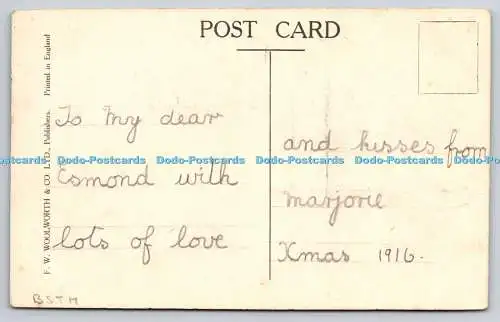 POST CARD
F. W. WOOLWORTH & CO. LTD., Publishers. Printed in England
To My dear
Esmond with
lots of love
and kisses from
Marjorie
Xmas 1916.
BSTM
Dodo-Postcards Dodo-Postcards Dodo-Postcards Dodo-Postcards Dodo-Postcards